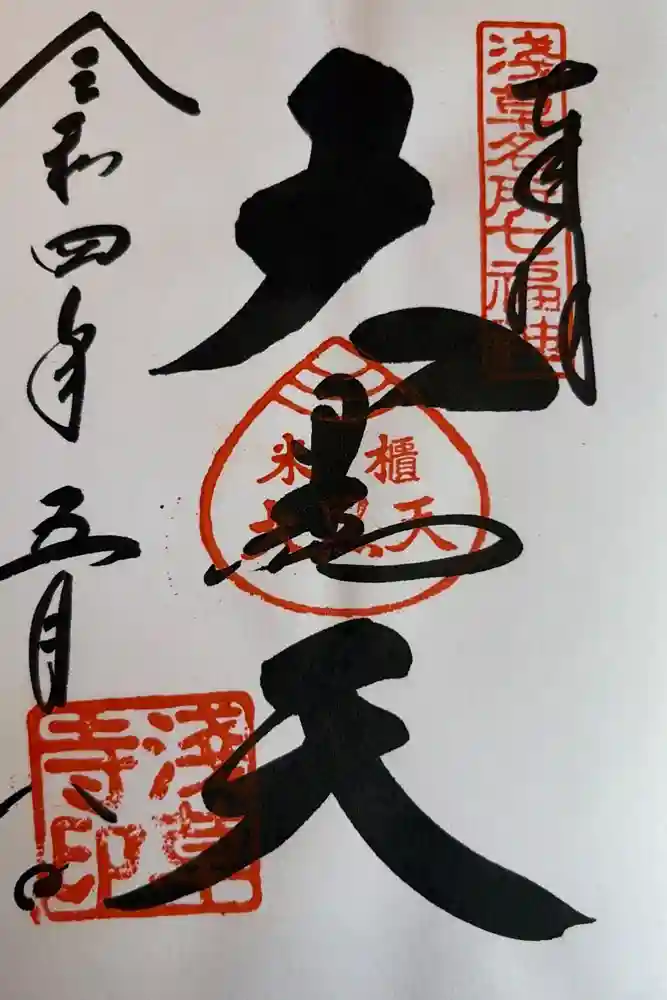 奉拝
淺草名所七福神
大黒天
米櫃
大黒天
令和四年五月八日
淺草
寺印